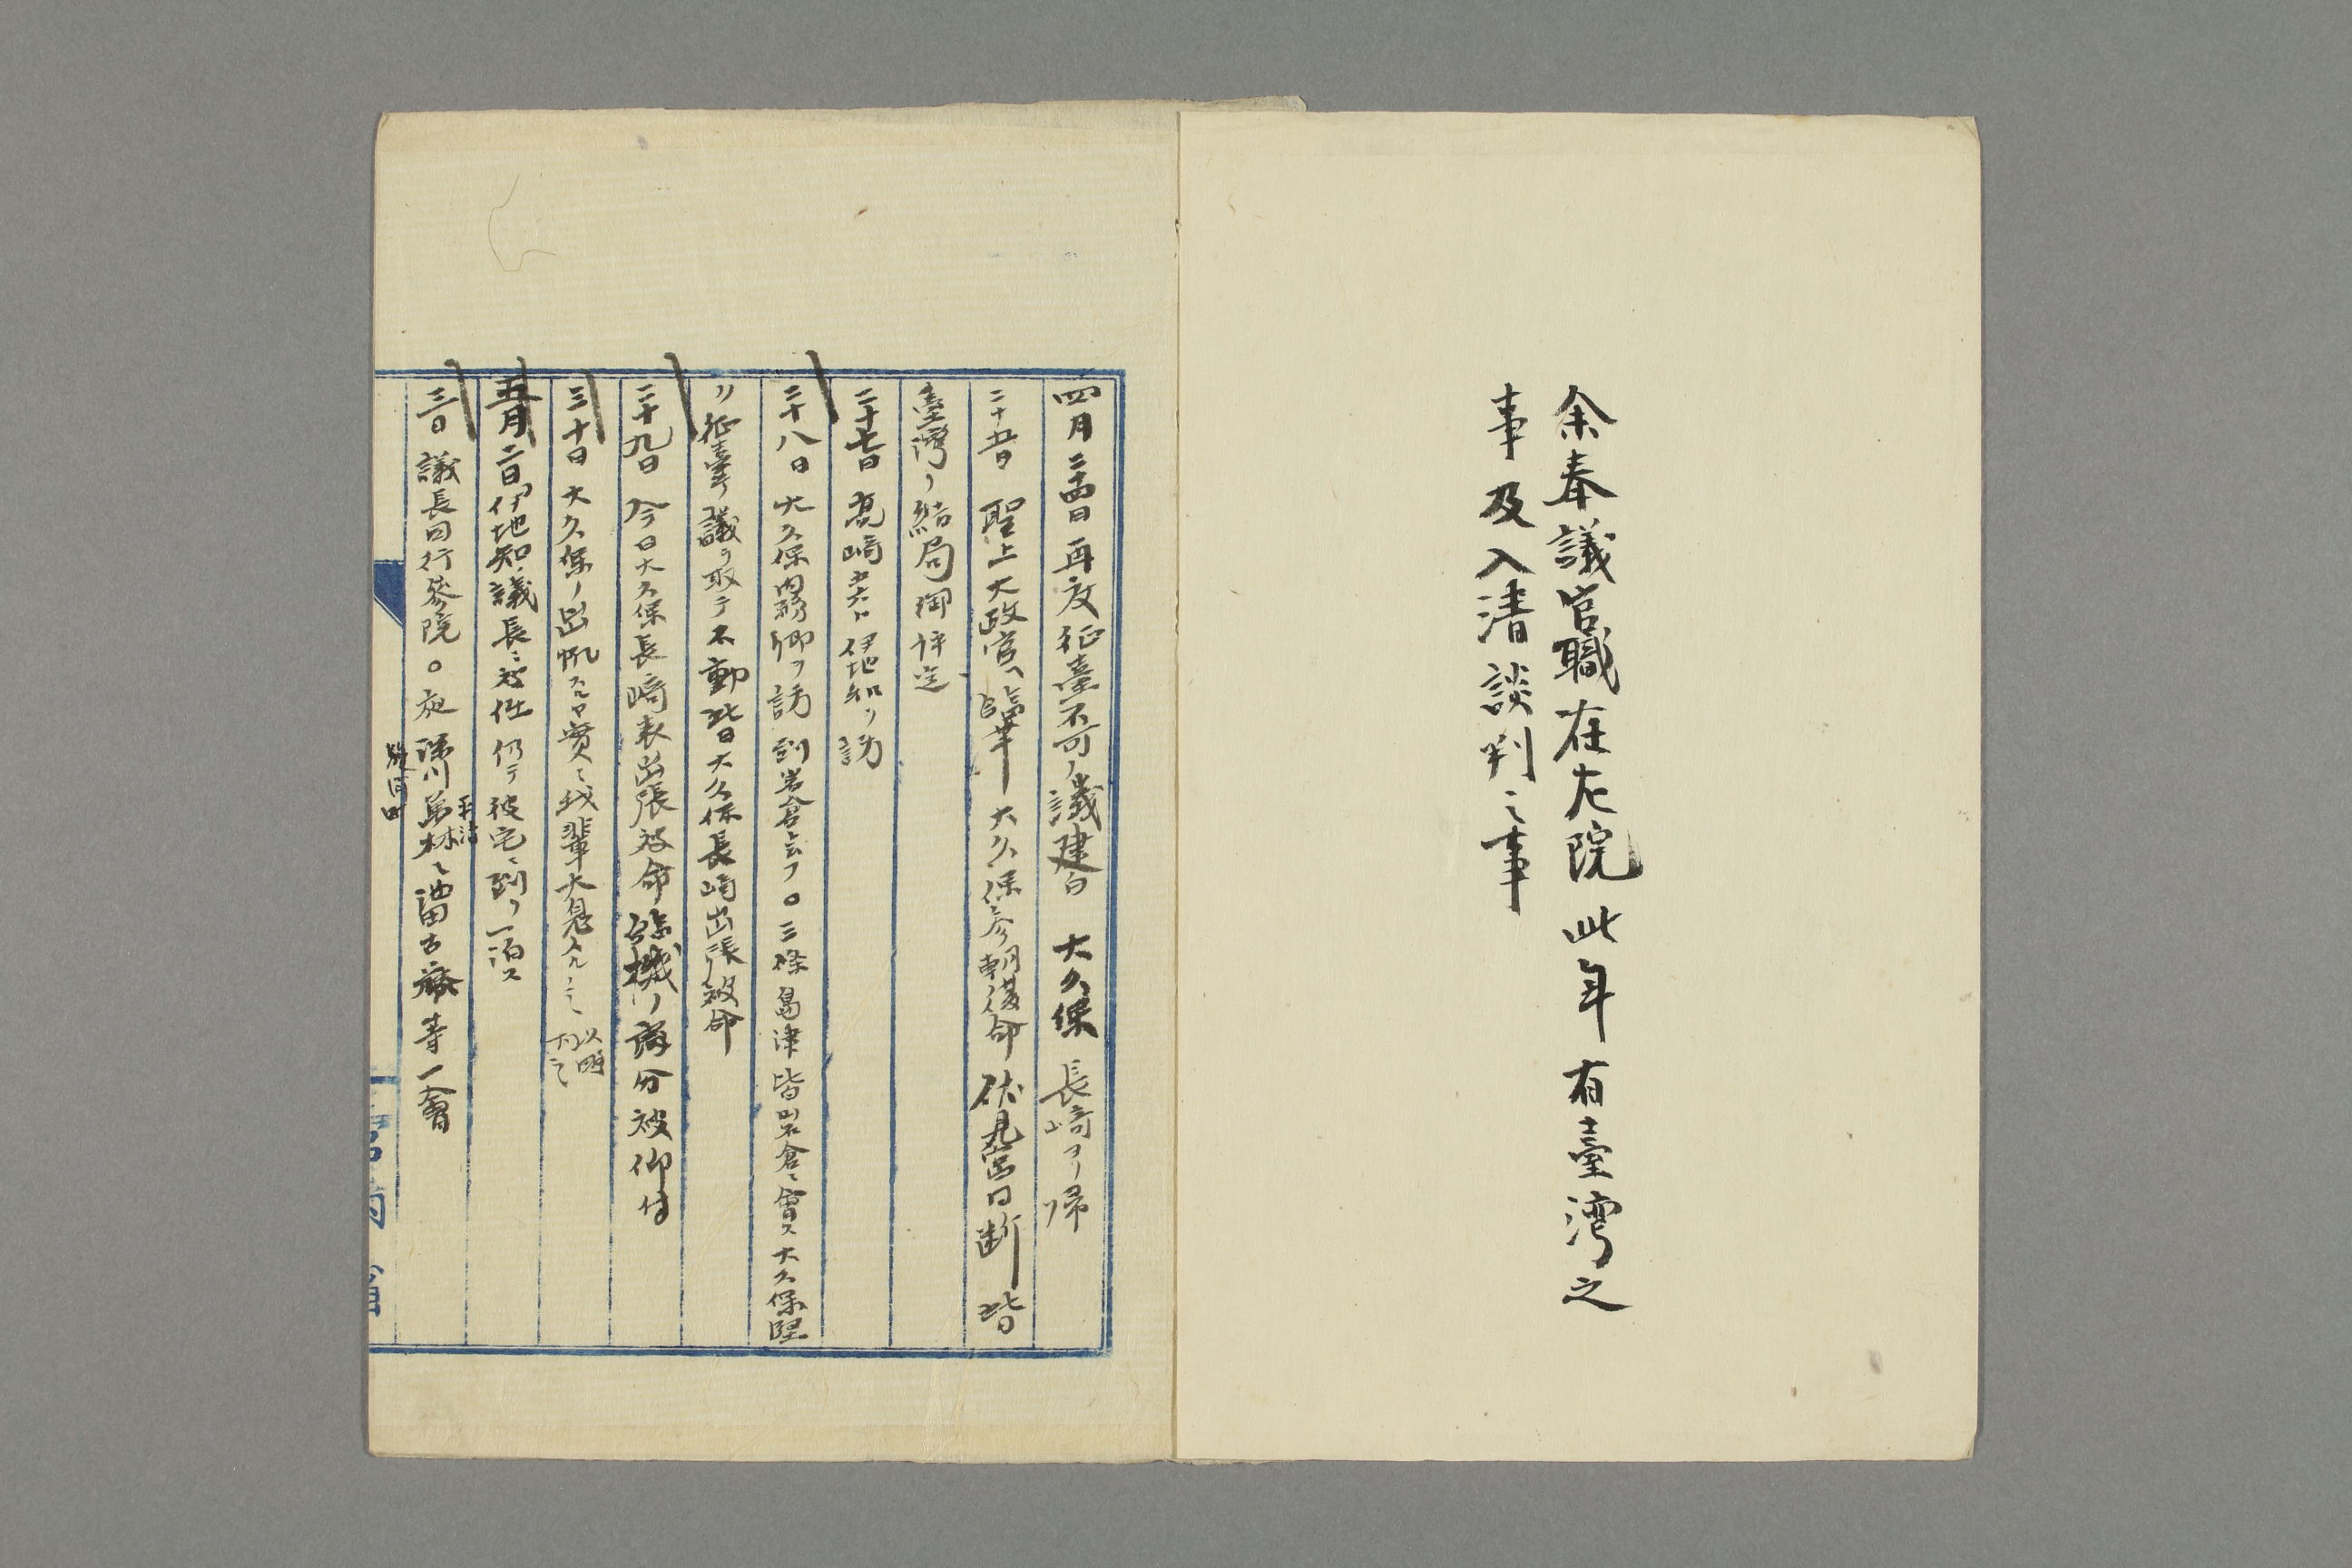 余奉議官職在左院此年有臺湾之
事及入清談判之事
四月二十四日再度征臺不可ノ議建白 大久保長﨑ヨリ帰
二十五日 聖上大政官ヘ臨幸 大久保参朝復命 伏見宮口断 皆
臺湾ノ結局御評定
二十七日 髙﨑 伊地知ヲ訪
二十八日 大久保内務卿ヲ訪 到岩倉 ○三條島津皆岩倉ニ會ス大久保堅
ク征臺ノ議ヲ取テ不動 大久保長﨑出張被命
二十九日 今日大久保長﨑表出張被命臨機ノ處分被仰付
三十日 大久保ノ出帆 實ニ我輩大息
五月二日伊地知議長ニ被任仍テ彼宅ニ到リ一泊ス
三日 議長同行參院○夜 一會